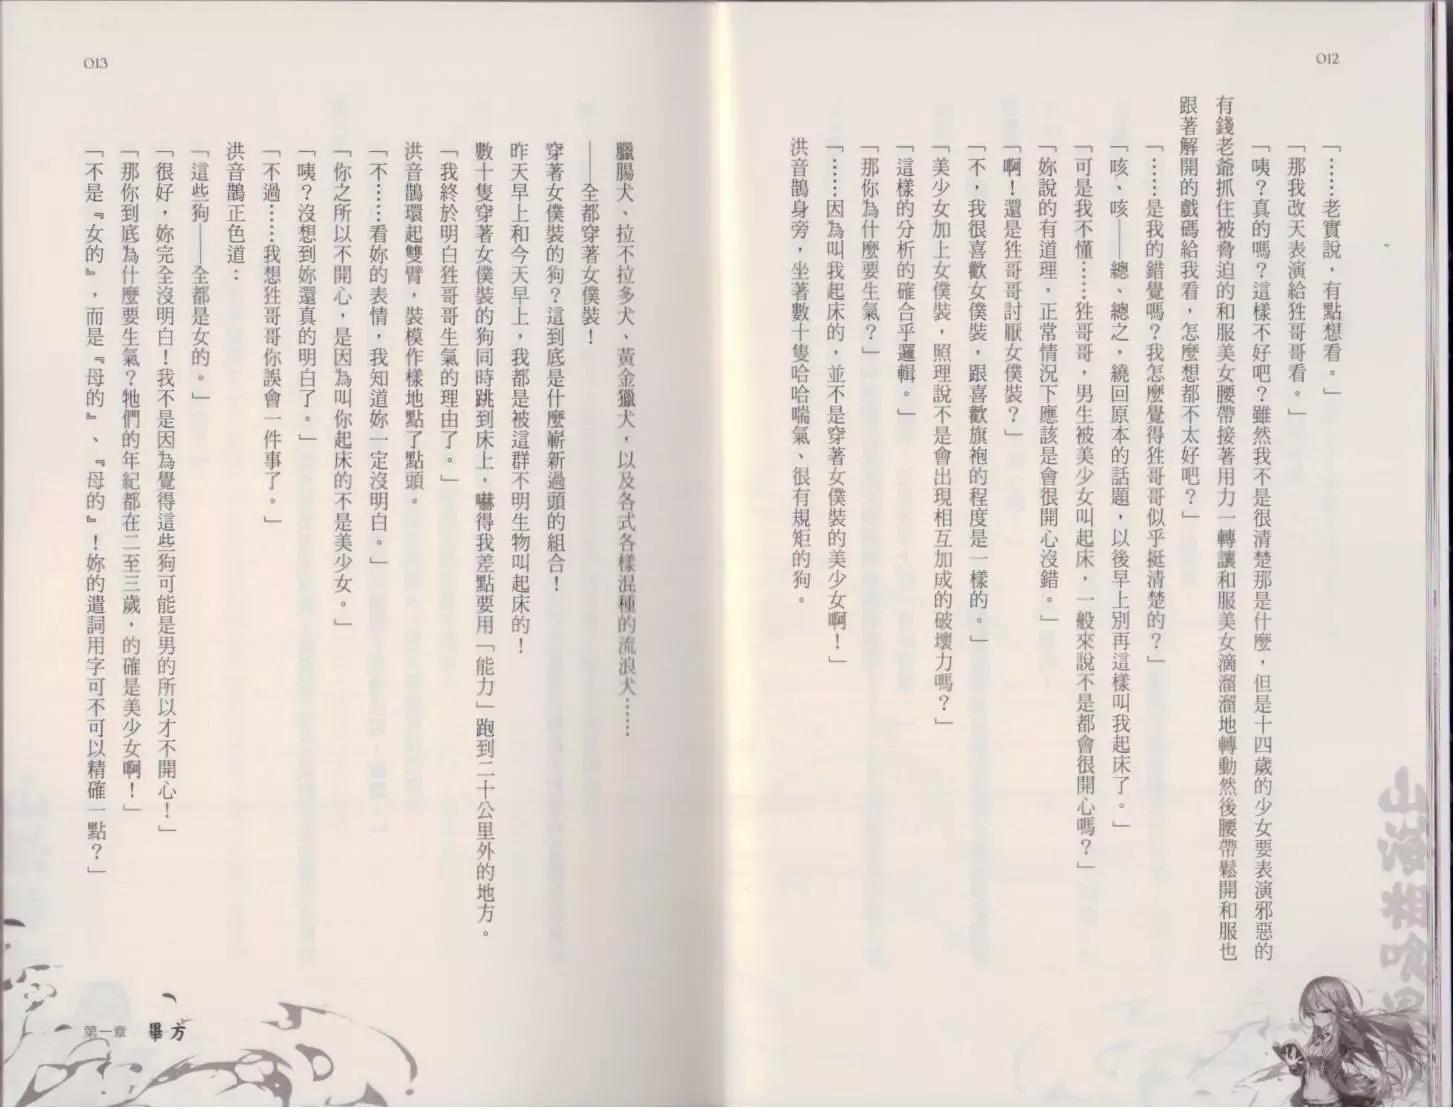 012
「……老實說，有點想看。」
「那我改天表演給狌哥哥看。」
「咦？真的嗎？這樣不好吧？雖然我不是很清楚那是什麼，但是十四歲的少女要表演邪惡的
有錢老爺抓住被脅迫的和服美女腰帶接著用力一轉讓和服美女滴溜溜地轉動然後腰帶鬆開和服也
跟著解開的戲碼給我看，怎麼想都不太好吧？」
「……是我的錯覺嗎？我怎麼覺得狌哥哥似乎挺清楚的？」
「咳、咳——總、總之，繞回原本的話題，以後早上別再這樣叫我起床了。」
「可是我不懂……狌哥哥，男生被美少女叫起床，一般來說不是都會很開心嗎？」
「妳說的有道理，正常情況下應該是會很開心沒錯。」
「啊！還是狌哥哥討厭女僕裝？」
「不，我很喜歡女僕裝，跟喜歡旗袍的程度是一樣的。」
「美少女加上女僕裝，照理說不是會出現相互加成的破壞力嗎？」
「這樣的分析的確合乎邏輯。」
「那你為什麼要生氣？」
「……因為叫我起床的，並不是穿著女僕裝的美少女啊！」
洪音鵲身旁，坐著數十隻哈哈哈喘氣、很有規矩的狗。
山海相喰異
013
臘腸犬、拉不拉多犬、黃金獵犬，以及各式各樣混種的流浪犬……
——全都穿著女僕裝！
穿著女僕裝的狗？這到底是什麼嶄新過頭的組合！
昨天早上和今天早上，我都是被這群不明生物叫起床的！
數十隻穿著女僕裝的狗同時跳到床上，嚇得我差點要用「能力」跑到二十公里外的地方。
「我終於明白狌哥哥生氣的理由了。」
洪音鵲環起雙臂，裝模作樣地點了點頭。
「不……看妳的表情，我知道妳一定沒明白。」
「你之所以不開心，是因為叫你起床的不是美少女。」
「咦？沒想到妳還真的明白了。」
「不過……我想狌哥哥你誤會一件事了。」
洪音鵲正色道：
「這些狗——全都是女的。」
「很好，妳完全沒明白！我不是因為覺得這些狗可能是男的所以才不開心！」
「那你到底為什麼要生氣？牠們的年紀都在二至三歲，的確是美少女啊！」
「不是『女的』，而是『母的』、『母的』！妳的遣詞用字可不可以精確一點？」
第一章 畢方